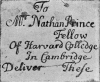 To
Mr. Nathan Prince
Fellow
Of Harvard Colledge
In Cambridge
Deliver These